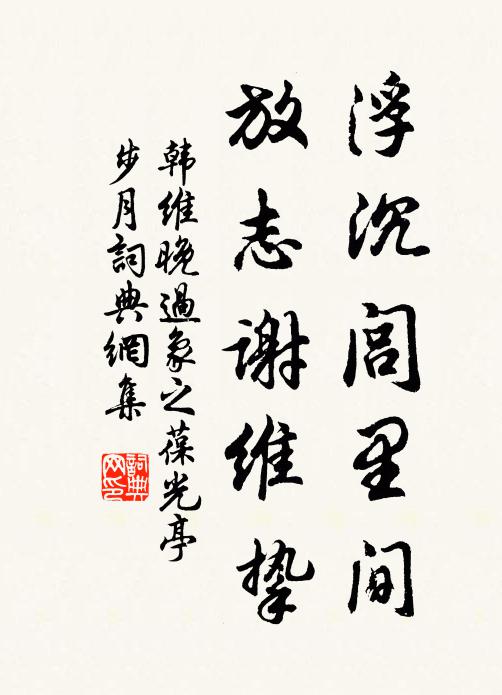 浮沉闾里间
放志谢维挚
韩维晚过象之葆光亭
步月詞典網集
詞典网印